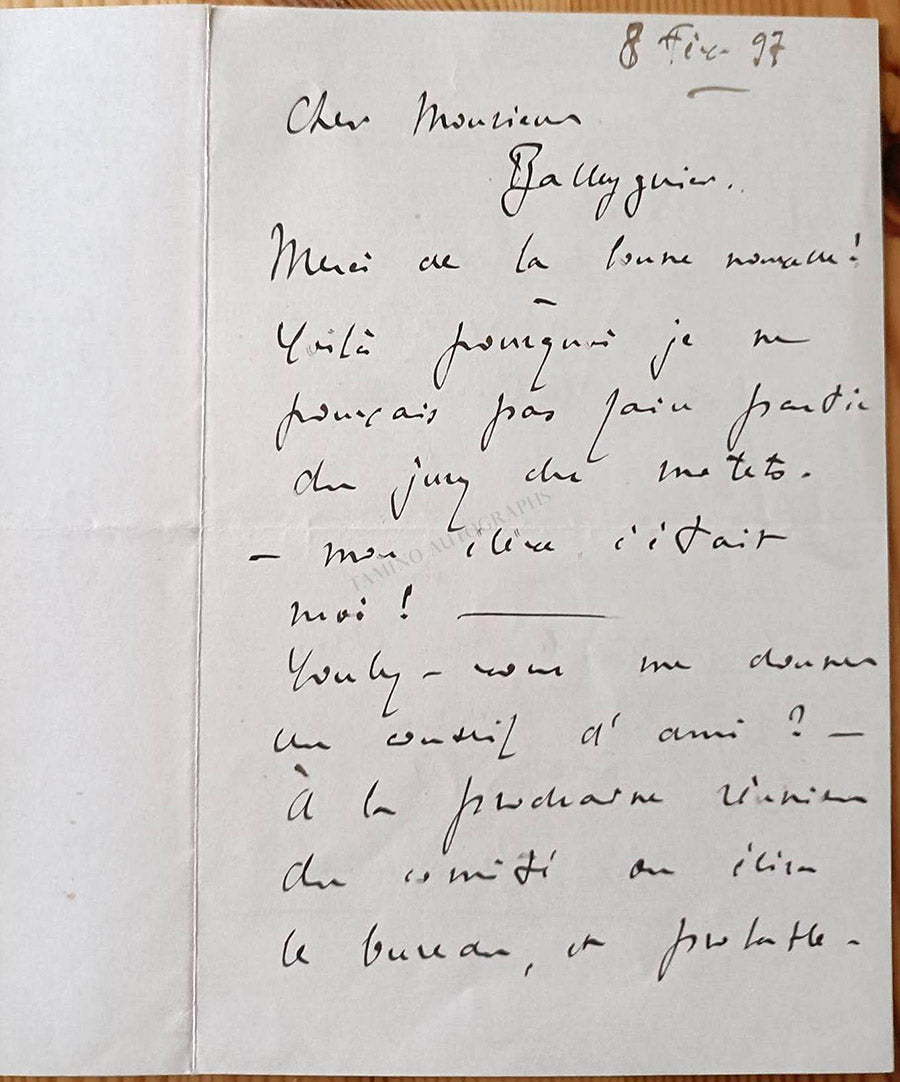 8 Fév. 97
Cher Monsieur
Balleyguier.
Merci de la bonne nouvelle!
Voilà pourquoi je ne
pouvais pas faire partie
du jury des motets.
TAMINO AUTOGRAPHS
- mon élève c'était
moi !
Voulez-vous me donner
un conseil d'ami ? -
À la prochaine réunion
du comité on élira
le bureau, et probable-